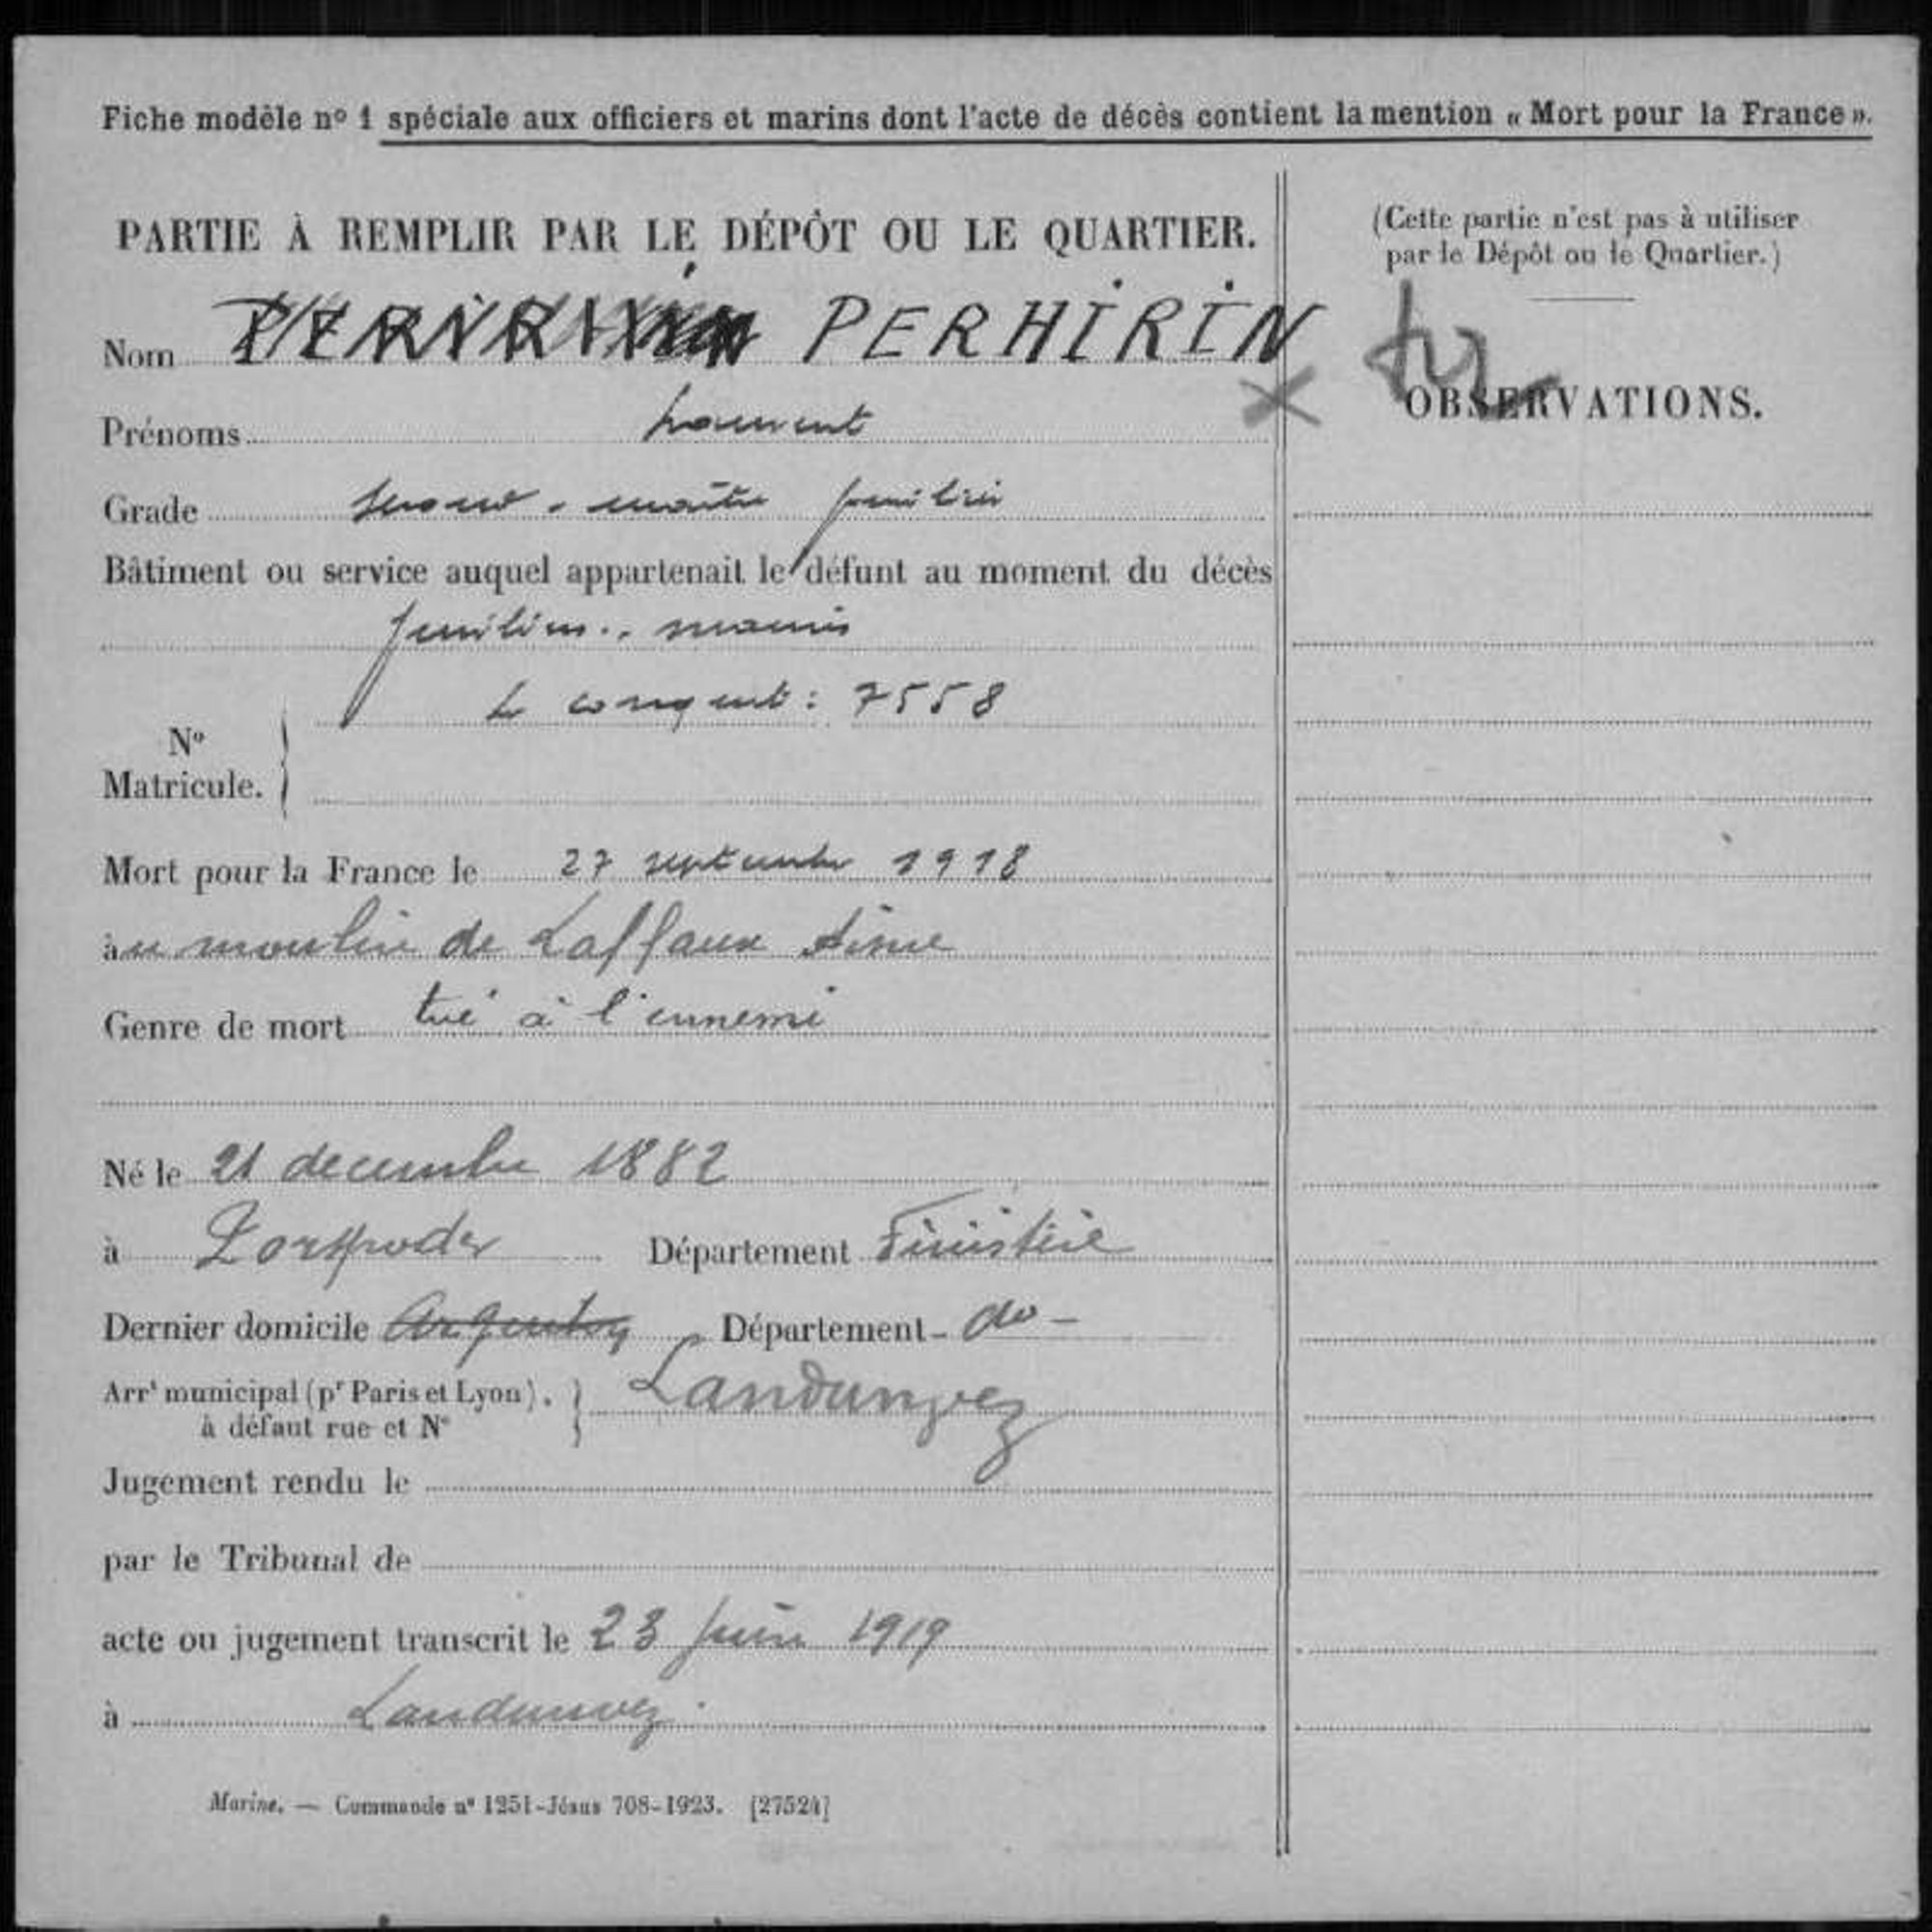 Fiche modèle nº 1 spéciale aux officiers et marins dont l'acte de décès contient la mention « Mort pour la France ».
PARTIE À REMPLIR PAR LE DÉPÔT OU LE QUARTIER.
Nom PERHIRIN
Prénoms Laurent
Grade second-maître fusilier
Bâtiment ou service auquel appartenait le défunt au moment du décès
fusiliers-marins
Nº Matricule. Le conquet : 7558
Mort pour la France le 27 septembre 1918
àu moulin de Laffaux Aisne
Genre de mort tué à l'ennemi
Né le 21 decembre 1882
à Porspoder Département Finistère
Dernier domicile Argenton Département - do -
Arrt municipal (pr Paris et Lyon). à défaut rue et Nº Landunvez
Jugement rendu le
par le Tribunal de
acte ou jugement transcrit le 23 Juin 1919
à Landunvez.
Marine. — Commande nº 1251-Jésus 708-1923. [27524]
(Cette partie n'est pas à utiliser
par le Dépôt ou le Quartier.)
OBSERVATIONS.